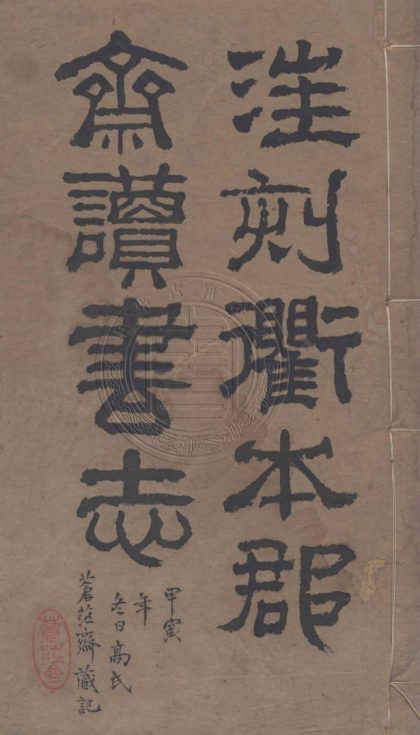 汪刻衢本郡
齋讀書志
甲寅
年
冬日高氏
蒼茫齋識記